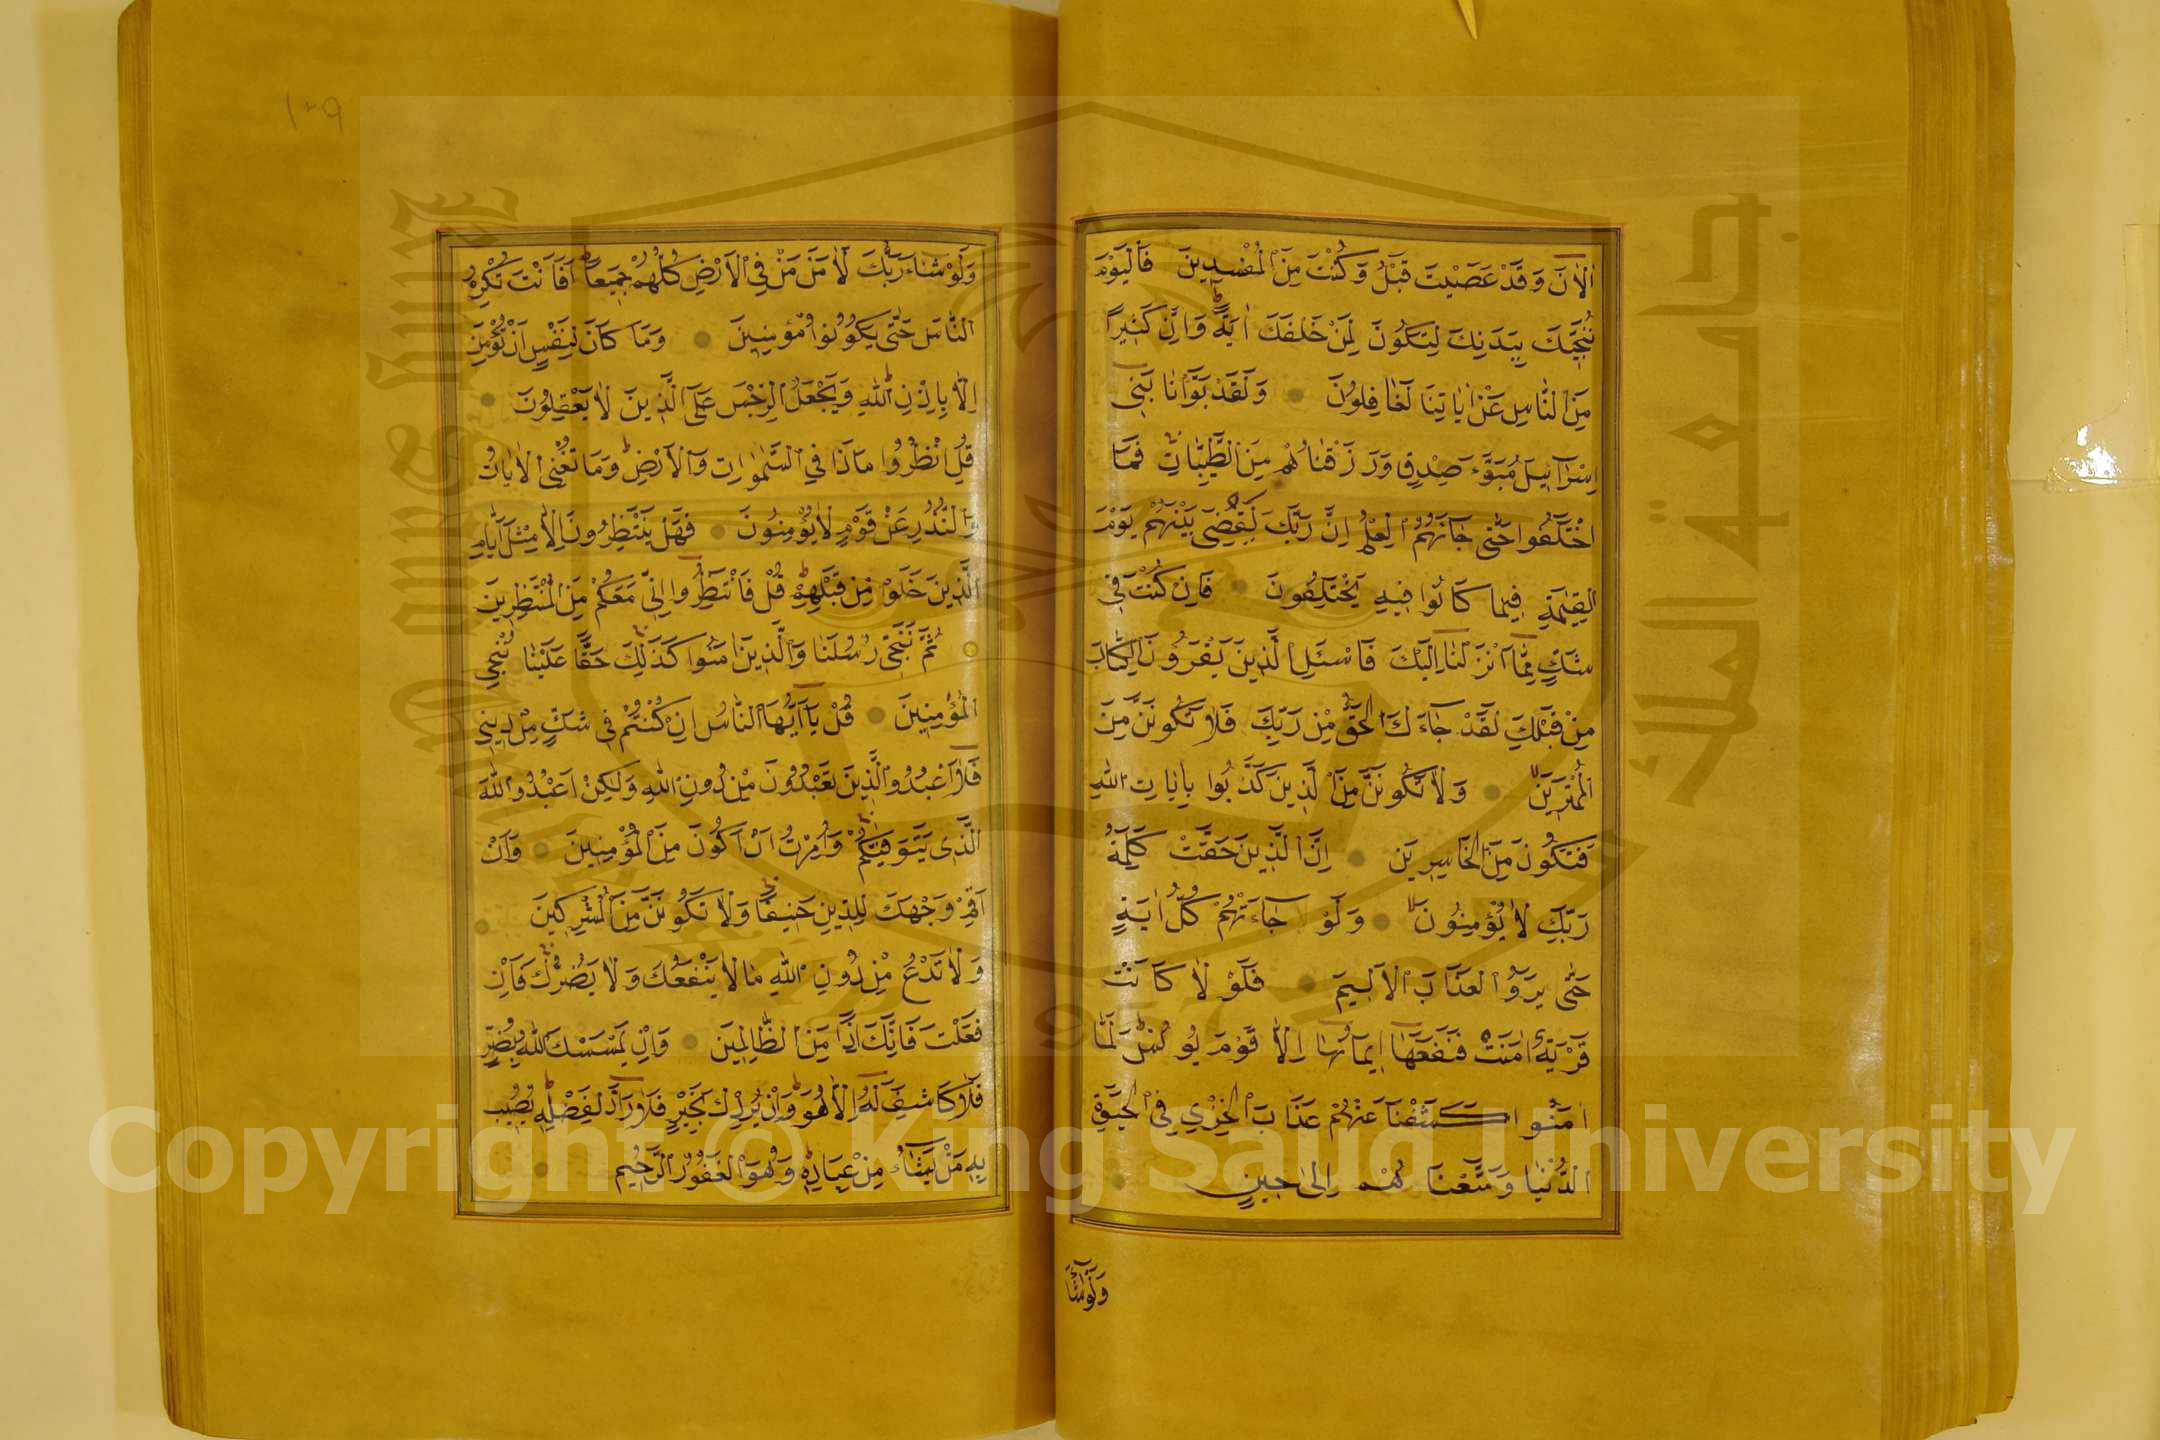 اٰلْاٰنَ وَقَدْ عَصَيْتَ قَبْلُ وَكُنْتَ مِنَ الْمُفْسِدِينَ فَالْيَوْمَ
نُنَجِّيكَ بِبَدَنِكَ لِتَكُونَ لِمَنْ خَلْفَكَ اٰيَةً وَاِنَّ كَثِيرًا
مِنَ النَّاسِ عَنْ اٰيَاتِنَا لَغَافِلُونَ وَلَقَدْ بَوَّاْنَا بَنِى
اِسْرَآئِيلَ مُبَوَّءَ صِدْقٍ وَرَزَقْنَاهُمْ مِنَ الطَّيِّبَاتِ فَمَا
اخْتَلَفُوا حَتّٰى جَآءَهُمُ الْعِلْمُ اِنَّ رَبَّكَ يَقْضِى بَيْنَهُمْ يَوْمَ
الْقِيٰمَةِ فِيمَا كَانُوا فِيهِ يَخْتَلِفُونَ فَاِنْ كُنْتَ فِى
شَكٍّ مِمَّآ اَنْزَلْنَآ اِلَيْكَ فَاسْئَلِ الَّذِينَ يَقْرَؤُنَ الْكِتَابَ
مِنْ قَبْلِكَ لَقَدْ جَآءَكَ الْحَقُّ مِنْ رَبِّكَ فَلَا تَكُونَنَّ مِنَ
الْمُمْتَرِينَ وَلَا تَكُونَنَّ مِنَ الَّذِينَ كَذَّبُوا بِاٰيَاتِ اللّٰهِ
فَتَكُونَ مِنَ الْخَاسِرِينَ اِنَّ الَّذِينَ حَقَّتْ عَلَيْهِمْ كَلِمَةُ
رَبِّكَ لَا يُؤْمِنُونَ وَلَوْ جَآءَتْهُمْ كُلُّ اٰيَةٍ
حَتّٰى يَرَوُا الْعَذَابَ الْاَلِيمَ فَلَوْلَا كَانَتْ
قَرْيَةٌ اٰمَنَتْ فَنَفَعَهَآ اِيمَانُهَآ اِلَّا قَوْمَ يُونُسَ لَمَّآ
اٰمَنُوا كَشَفْنَا عَنْهُمْ عَذَابَ الْخِزْيِ فِى الْحَيٰوةِ
الدُّنْيَا وَمَتَّعْنَاهُمْ اِلٰى حِينٍ
وَلَوْ شَآءَ
١٠٩
وَلَوْ شَآءَ رَبُّكَ لَاٰمَنَ مَنْ فِى الْاَرْضِ كُلُّهُمْ جَمِيعًا اَفَاَنْتَ تُكْرِهُ
النَّاسَ حَتّٰى يَكُونُوا مُؤْمِنِينَ وَمَا كَانَ لِنَفْسٍ اَنْ تُؤْمِنَ
اِلَّا بِاِذْنِ اللّٰهِ وَيَجْعَلُ الرِّجْسَ عَلَى الَّذِينَ لَا يَعْقِلُونَ
قُلِ انْظُرُوا مَاذَا فِى السَّمٰوَاتِ وَالْاَرْضِ وَمَا تُغْنِى الْاٰيَاتُ
وَالنُّذُرُ عَنْ قَوْمٍ لَا يُؤْمِنُونَ فَهَلْ يَنْتَظِرُونَ اِلَّا مِثْلَ اَيَّامِ
الَّذِينَ خَلَوْا مِنْ قَبْلِهِمْ قُلْ فَانْتَظِرُوا اِنِّى مَعَكُمْ مِنَ الْمُنْتَظِرِينَ
ثُمَّ نُنَجِّى رُسُلَنَا وَالَّذِينَ اٰمَنُوا كَذٰلِكَ حَقًّا عَلَيْنَا نُنْجِ
الْمُؤْمِنِينَ قُلْ يَآ اَيُّهَا النَّاسُ اِنْ كُنْتُمْ فِى شَكٍّ مِنْ دِينِى
فَلَآ اَعْبُدُ الَّذِينَ تَعْبُدُونَ مِنْ دُونِ اللّٰهِ وَلٰكِنْ اَعْبُدُ اللّٰهَ
الَّذِى يَتَوَفّٰيكُمْ وَاُمِرْتُ اَنْ اَكُونَ مِنَ الْمُؤْمِنِينَ وَاَنْ
اَقِمْ وَجْهَكَ لِلدِّينِ حَنِيفًا وَلَا تَكُونَنَّ مِنَ الْمُشْرِكِينَ
وَلَا تَدْعُ مِنْ دُونِ اللّٰهِ مَا لَا يَنْفَعُكَ وَلَا يَضُرُّكَ فَاِنْ
فَعَلْتَ فَاِنَّكَ اِذًا مِنَ الظَّالِمِينَ وَاِنْ يَمْسَسْكَ اللّٰهُ بِضُرٍّ
فَلَا كَاشِفَ لَهُٓ اِلَّا هُوَ وَاِنْ يُرِدْكَ بِخَيْرٍ فَلَا رَآدَّ لِفَضْلِهِ يُصِيبُ
بِهِ مَنْ يَشَآءُ مِنْ عِبَادِهِ وَهُوَ الْغَفُورُ الرَّحِيمُ
جامعة الملك سعود
King Saud University
1957
Copyright © King Saud University